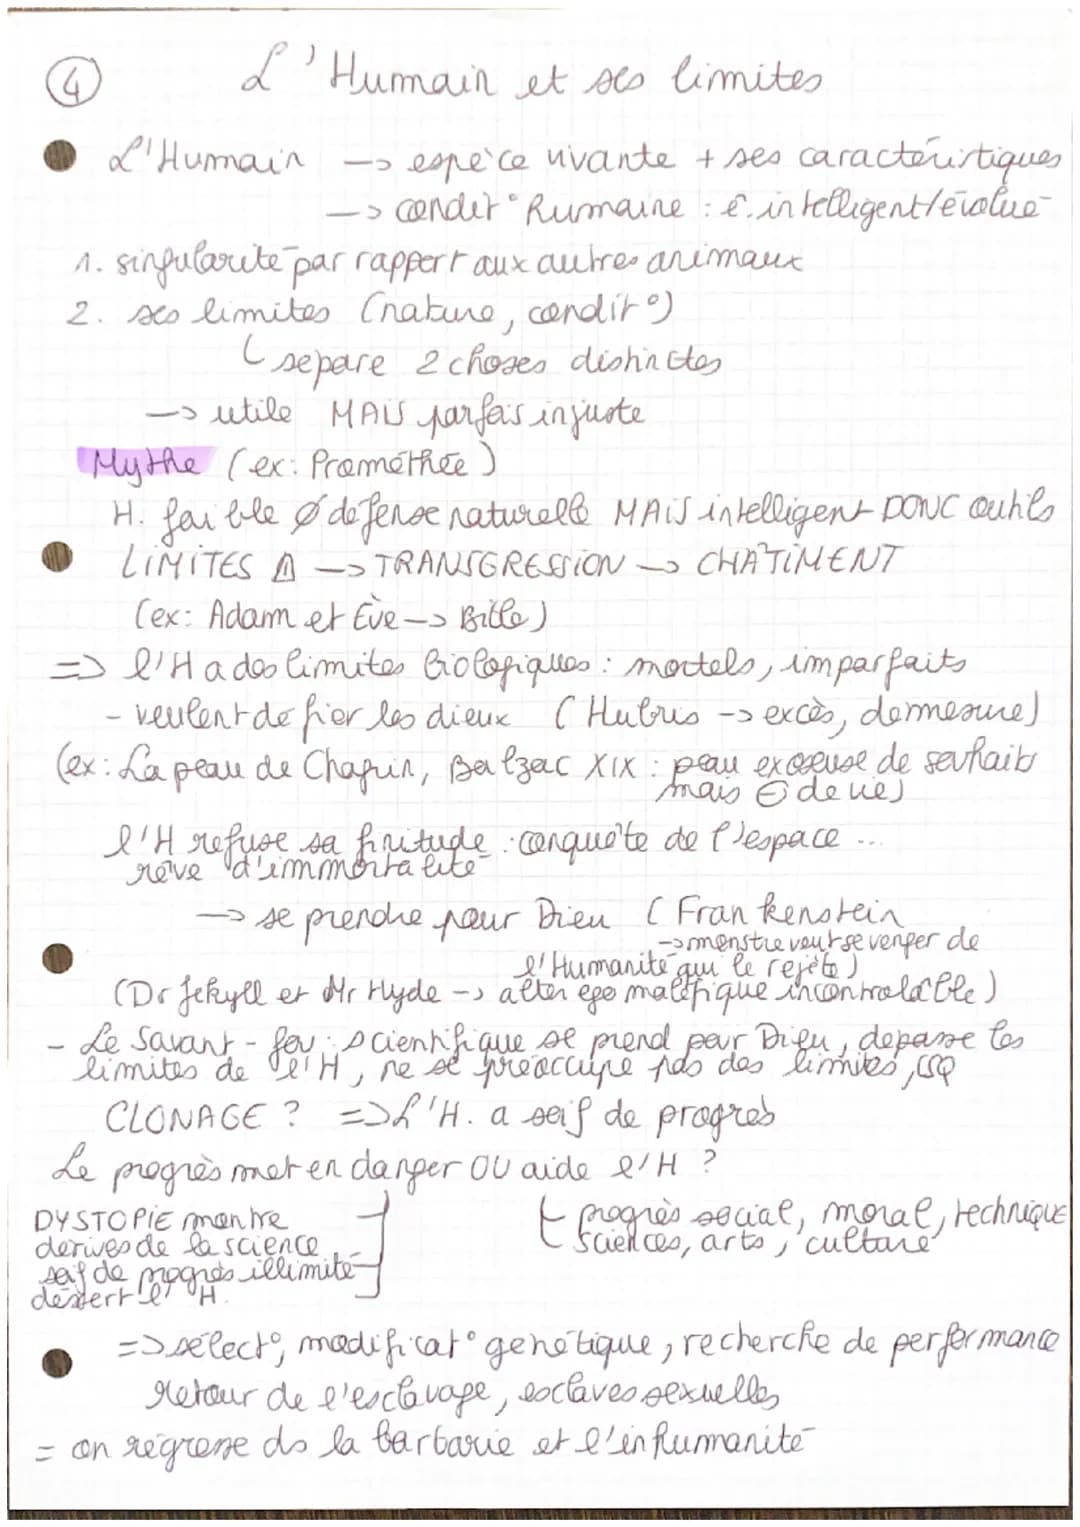 ④ L'Humain et ses limites
L'Humain -> espèce vivante + ses caractéristiques
-> condit° humaine : ê. intelligent/évolué
1. singularité par rapport aux autres animaux
2. ses limites (nature, condit°)
sépare 2 choses distinctes
-> utile MAIS parfois injuste
Mythe (ex: Prométhée)
H. faible Ø défense naturelle MAIS intelligent DONC outils
LIMITES ⚠ -> TRANSGRESSION -> CHÂTIMENT
(ex: Adam et Ève -> Bible)
=> l'H a des limites biologiques : mortels, imparfaits
- veulent défier les dieux (Hubris -> excès, démesure)
(ex: La peau de Chagrin, Balzac XIX : peau exauseuse de souhaits
mais ⊖ de vie)
l'H refuse sa finitude : conquête de l'espace ...
rêve d'immortalité
-> se prendre pour Dieu (Frankenstein
-> monstre veut se venger de
l'Humanité qui le rejète)
(Dr Jekyll et Mr Hyde -> alter ego maléfique incontrolable)
- Le Savant-fou : scientifique se prend pour Dieu, dépasse les
limites de l'H, ne se préoccupe pas des limites, CSQ
CLONAGE ? => L'H. a soif de progrès
Le progrès met en danger OU aide l'H ?
DYSTOPIE montre
dérives de la science
soif de progrès illimité
déssert l'H.
progrès social, moral, technique
sciences, arts, culture
=> sélect°, modificat° génétique, recherche de performance
retour de l'esclavage, esclaves sexuelles
= on régresse ds la barbarie et l'inhumanité